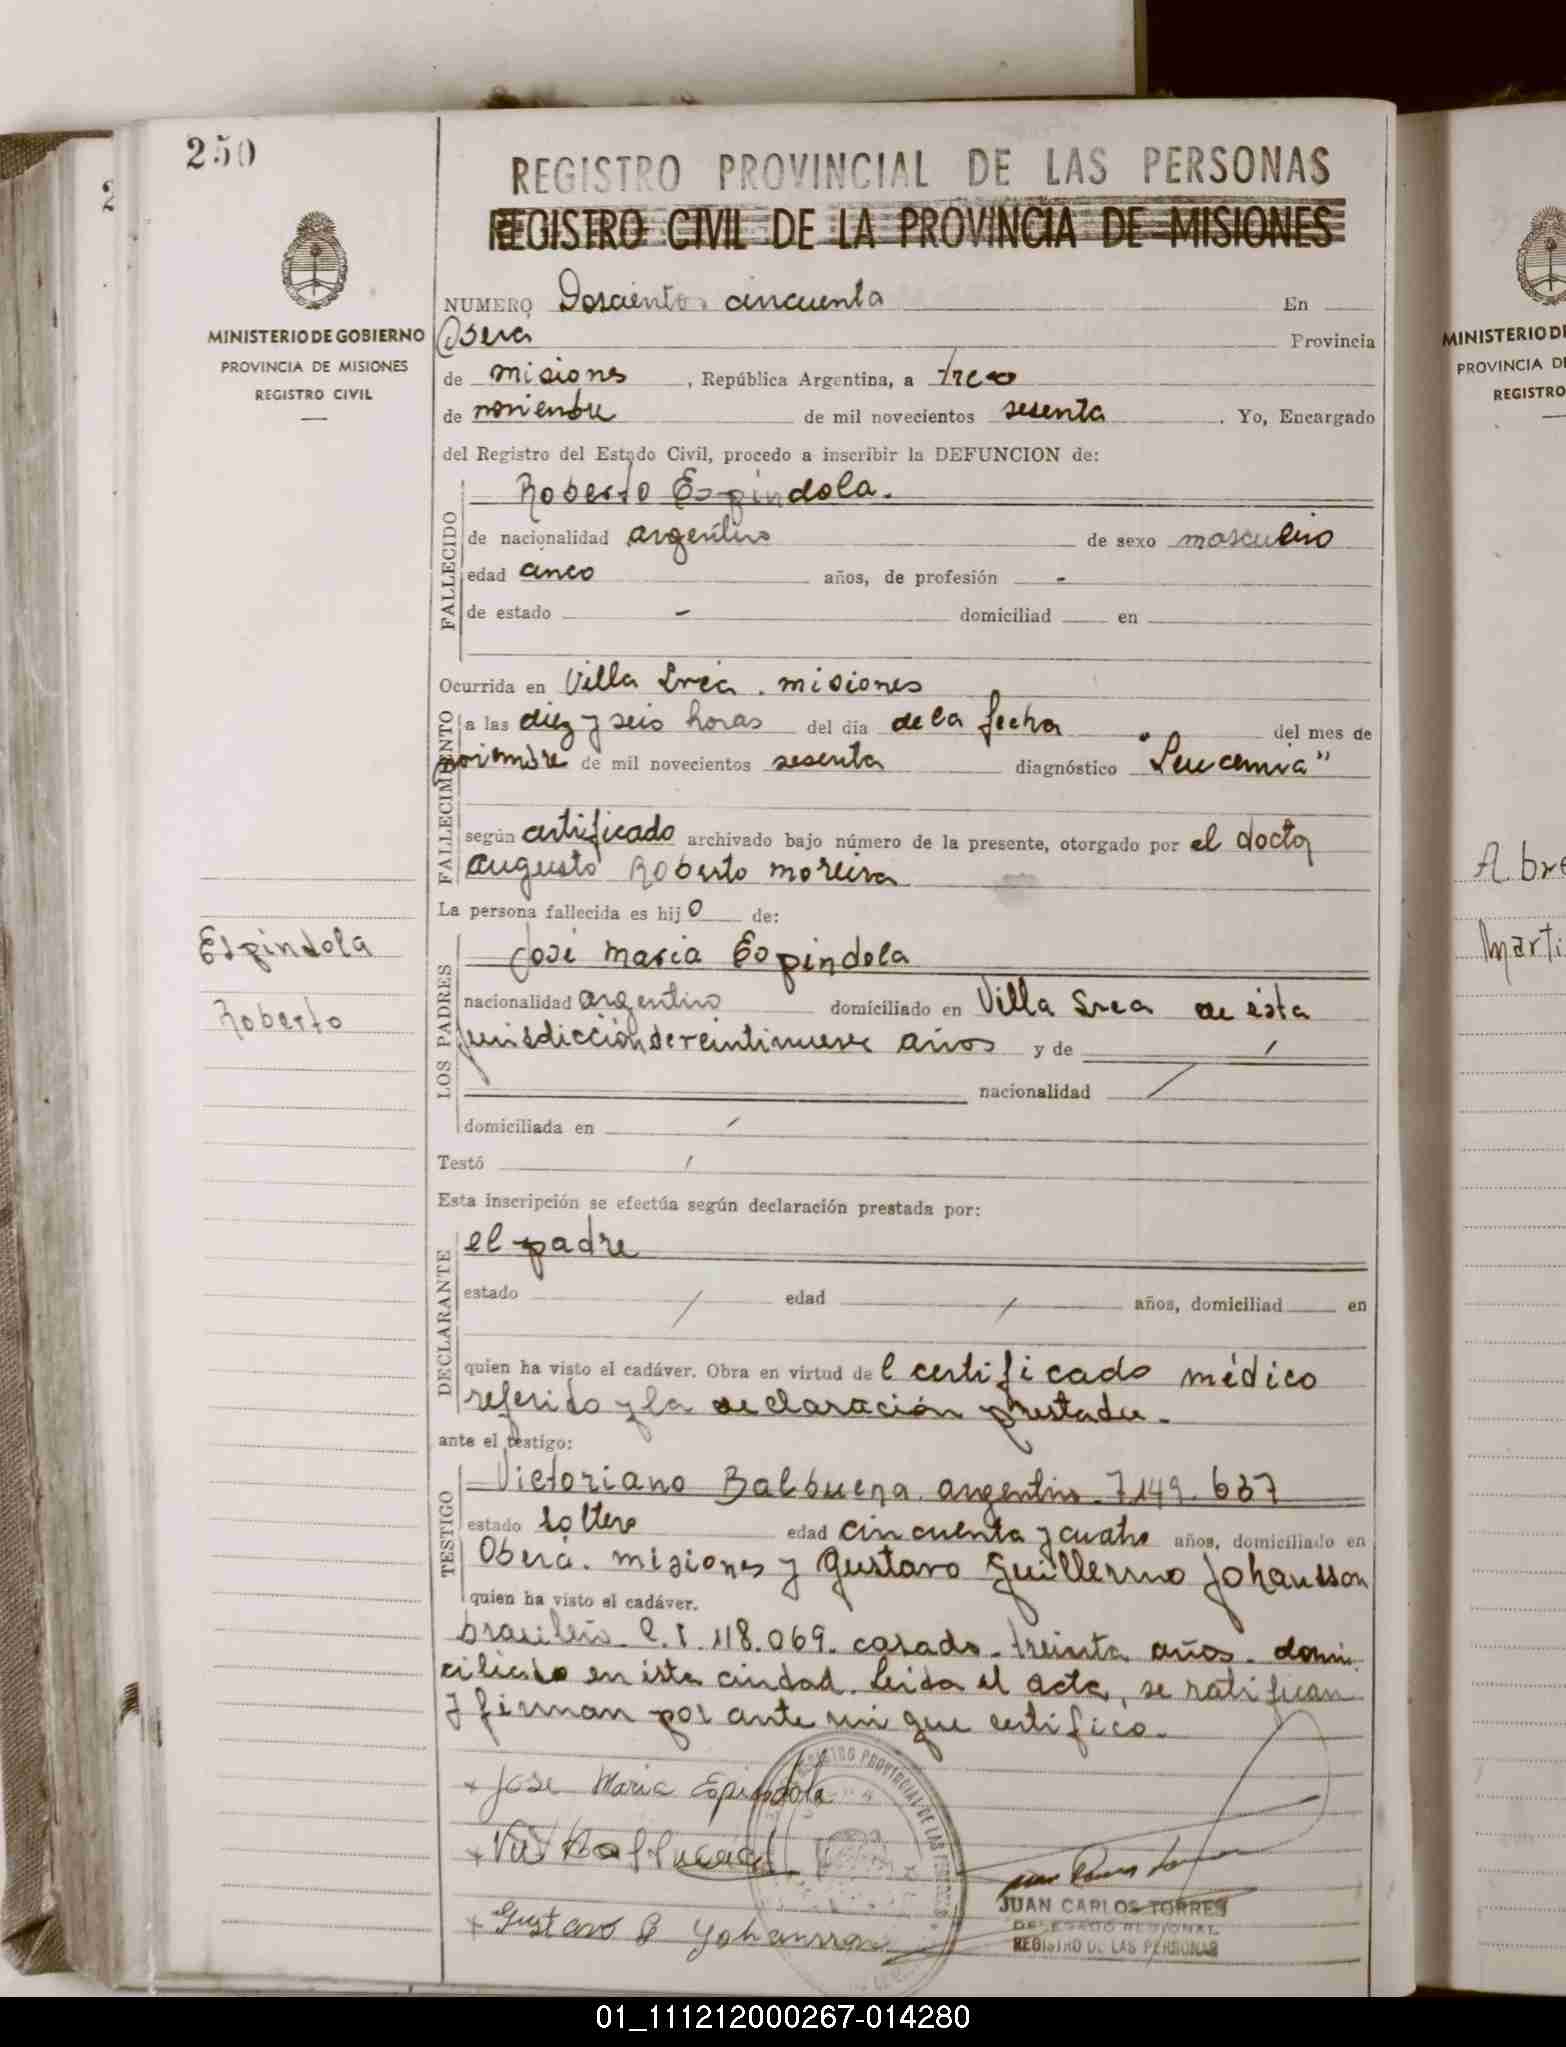 250
REGISTRO PROVINCIAL DE LAS PERSONAS
REGISTRO CIVIL DE LA PROVINCIA DE MISIONES
MINISTERIO DE GOBIERNO
PROVINCIA DE MISIONES
REGISTRO CIVIL
NUMERO Doscientos cincuenta En
Oberá Provincia
de misiones, República Argentina, a tres
de noviembre de mil novecientos sesenta. Yo, Encargado
del Registro del Estado Civil, procedo a inscribir la DEFUNCION de:
FALLECIDO
Roberto Espindola.
de nacionalidad argentino de sexo masculino
edad cinco años, de profesión -
de estado - domiciliad en
Ocurrida en Villa Svea. misiones
FALLECIMIENTO
a las diez y seis horas del día de la fecha del mes de
noviembre de mil novecientos sesenta diagnóstico "Leucemia"
según certificado archivado bajo número de la presente, otorgado por el doctor
Augusto Roberto moreira
La persona fallecida es hijo de:
Espindola
Roberto
LOS PADRES
José maria Espindola
nacionalidad argentino domiciliado en Villa Svea de ésta
jurisdicción de veintinueve años y de /
nacionalidad /
domiciliada en /
Testó /
Esta inscripción se efectúa según declaración prestada por:
DECLARANTE
el padre
estado / edad / años, domiciliad en
quien ha visto el cadáver. Obra en virtud del certificado médico
referido y la declaración prestada.
ante el testigo:
TESTIGO
Victoriano Balbuena. argentino. 7.149.637
estado soltero edad cincuenta y cuatro años, domiciliado en
Oberá. misiones y Gustavo Guillermo Johansson
quien ha visto el cadáver.
brasileño. C.I. 118.069. casado. treinta años. domi-
ciliado en ésta ciudad. Leida el acta, se ratifican
y firman por ante mi que certifico.
+ Jose Maria Espindola
+ Gustavo G Yohansson
REGISTRO PROVINCIAL DE LAS PERSONAS
JUAN CARLOS TORRES
DELEGADO REGIONAL
REGISTRO DE LAS PERSONAS
MINISTERIO DE
PROVINCIA DE
REGISTRO
A bre
Marti
01_111212000267-014280